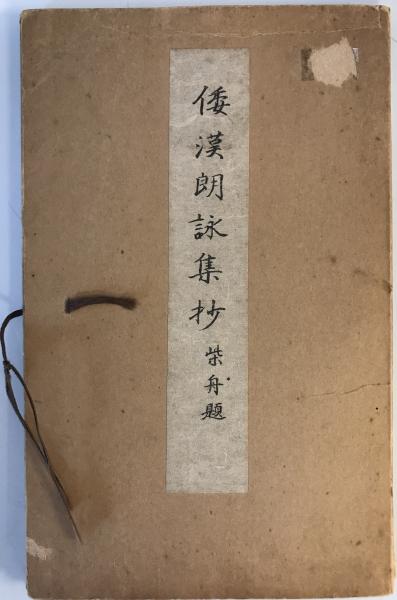 倭漢朗詠集抄
柴舟題